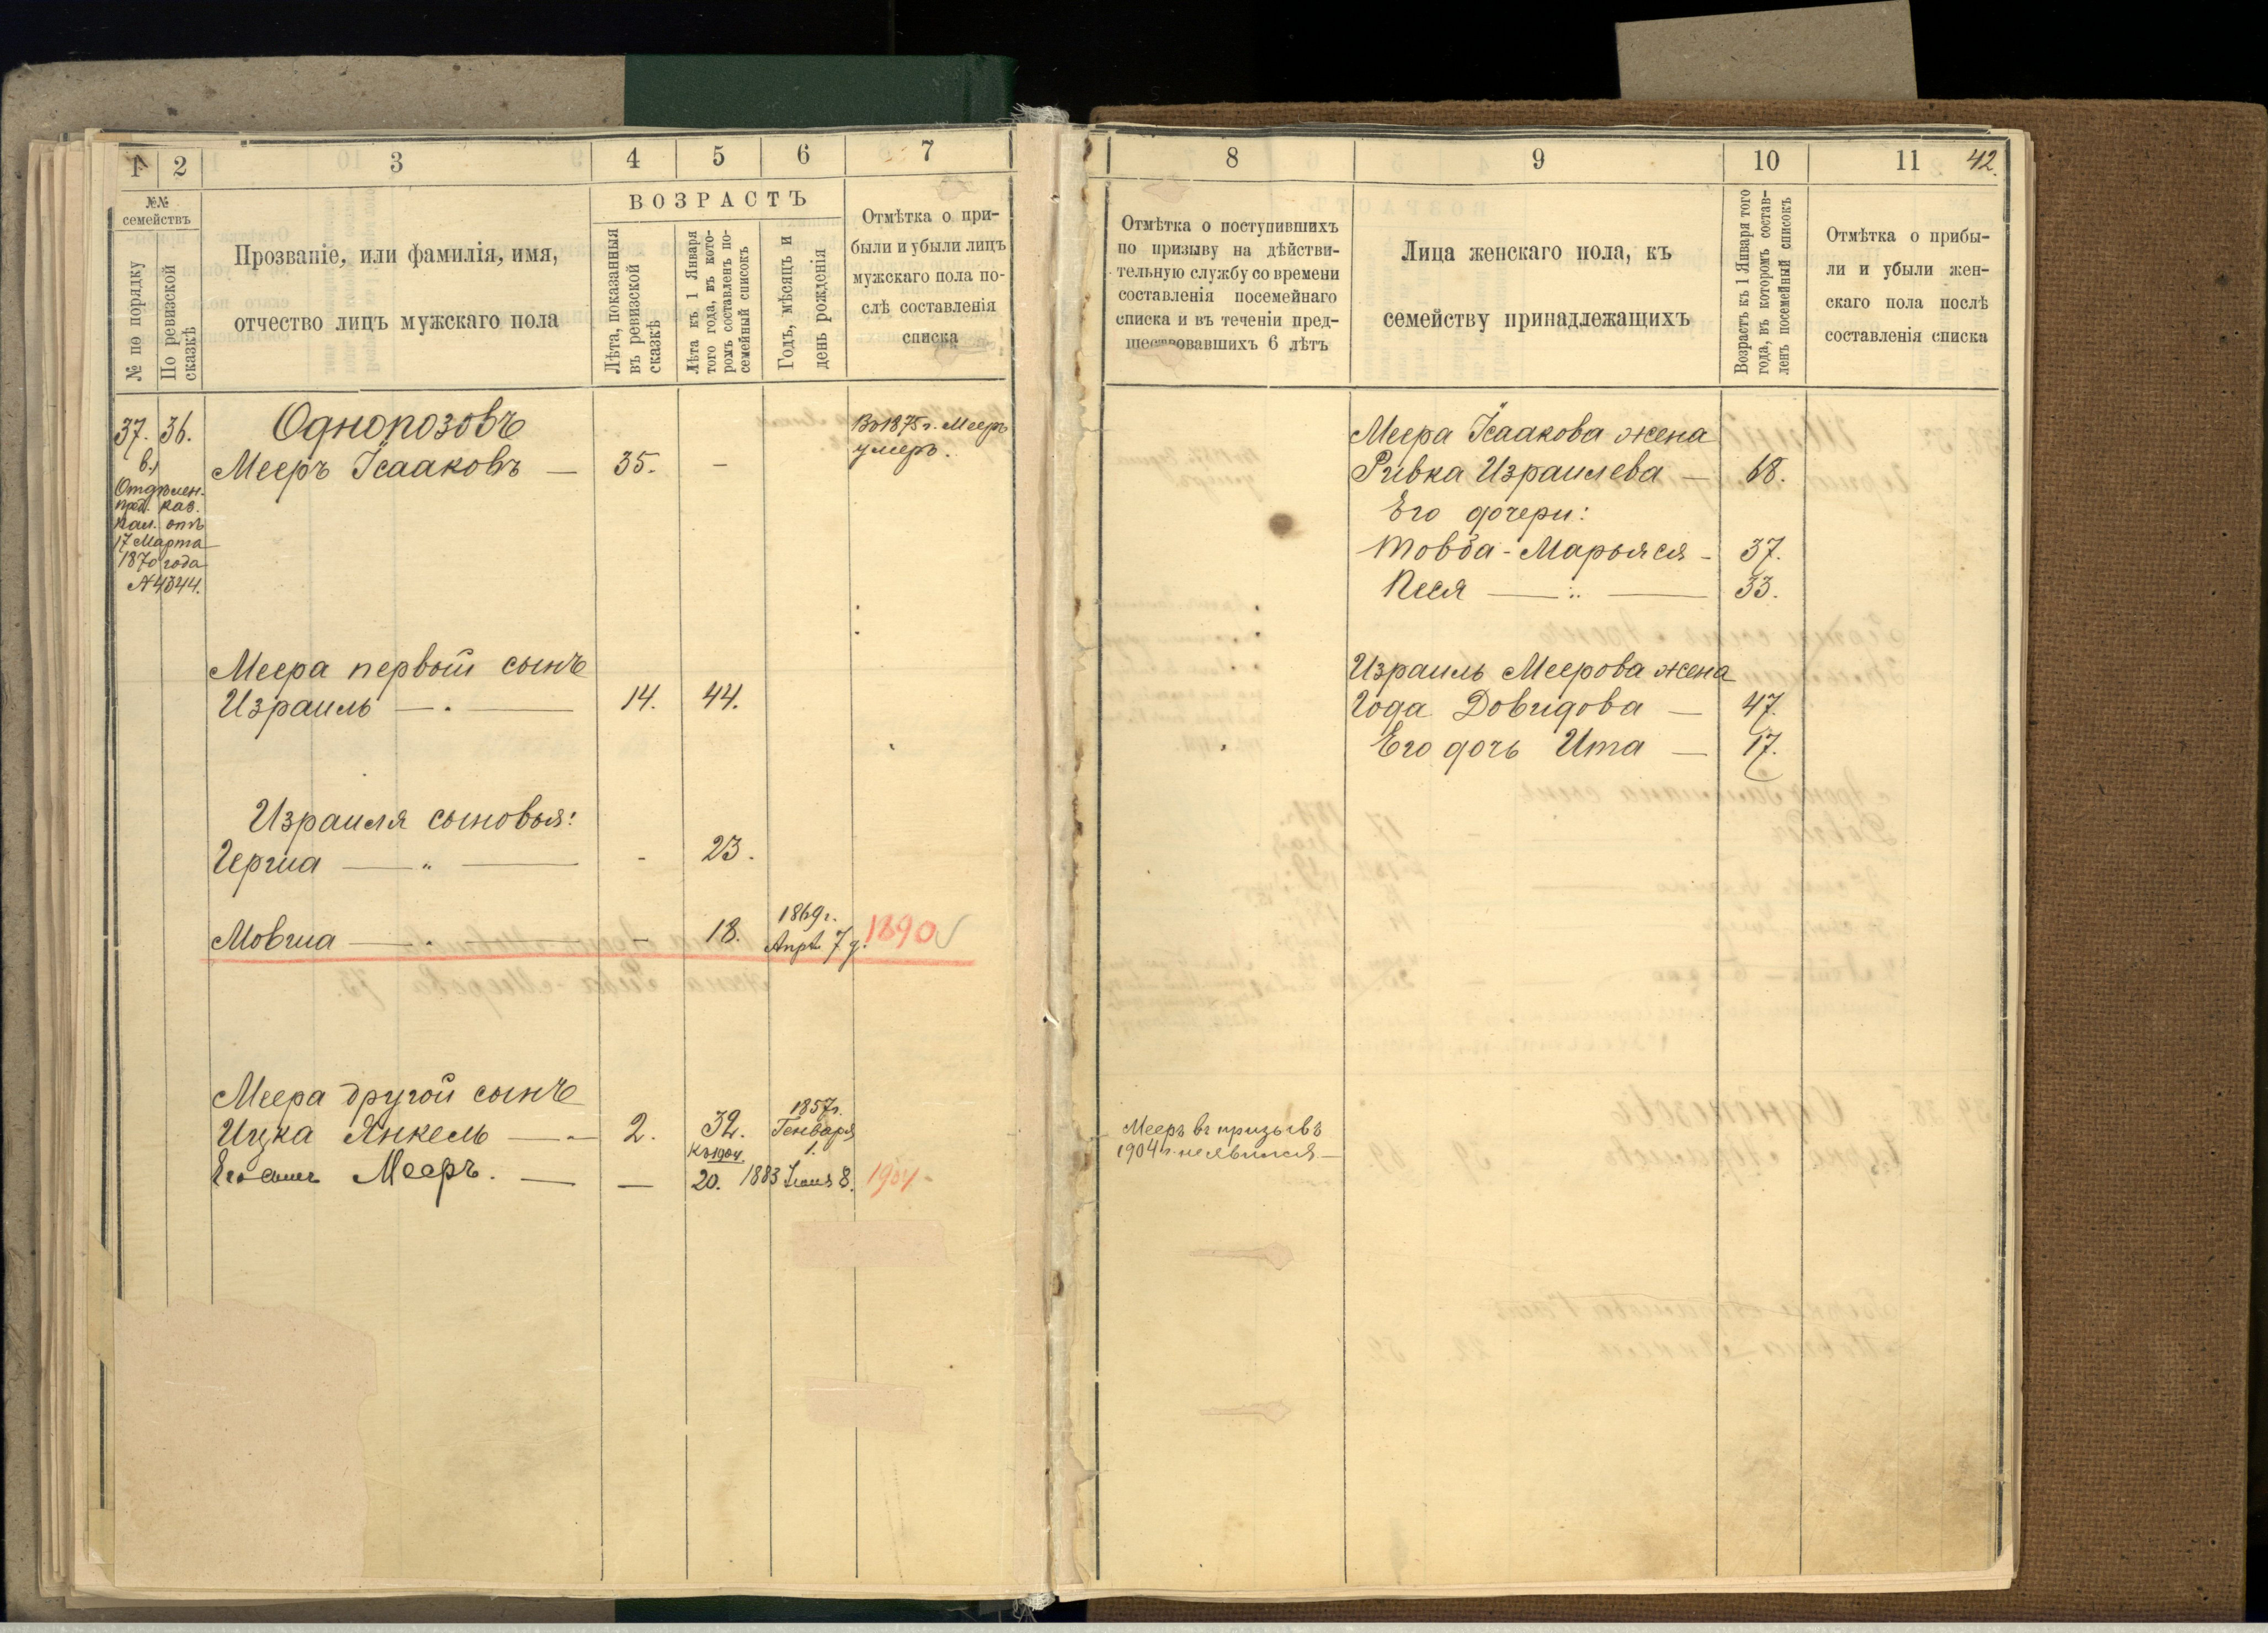 1 2 3 4 5 6 7
№№ семействъ
№ по порядку
По ревизской сказкѣ
Прозваніе, или фамилія, имя,
отчество лицъ мужскаго пола
ВОЗРАСТЪ
Лѣта, показанныя
въ ревизской
сказкѣ
Лѣта къ 1 Января
того года, въ кото-
ромъ составленъ по-
семейный списокъ
Годъ, мѣсяцъ и
день рожденія
Отмѣтка о при-
были и убыли лицъ
мужскаго пола по-
слѣ составленія
списка
37. 36. Однопозовъ
в.
Мееръ Ісааковъ — 35. —
Во 1875 г. Мееръ
умеръ.
Отдѣлен.
каз.
пал. отъ
17 Марта
1870 года
№ 4344.
Меера первый сынъ
Израиль — 14. 44.
Израиля сыновья:
Герша — " — - 23.
Мовша — - 18. 1869 г.
Апрѣ 7 д. 1890
Меера другой сынъ
Ицка Янкель — 2. 32. 1857 г.
Генваря
1.
Къ 1904.
Его сынъ Мееръ. — — 20. 1883 Іюня 8. 1904
8 9 10 11 42.
Отмѣтка о поступившихъ
по призыву на дѣйстви-
тельную службу со времени
составленія посемейнаго
списка и въ теченіи пред-
шествовавшихъ 6 лѣтъ
Лица женскаго пола, къ
семейству принадлежащихъ
Возрастъ къ 1 Января того
года, въ которомъ состав-
ленъ посемейный списокъ
Отмѣтка о прибы-
ли и убыли жен-
скаго пола послѣ
составленія списка
Меера Ісаакова жена
Ривка Израилева — 68.
Его дочери:
Товба-Марьяся — 37.
Песя — " — 33.
Израиль Меерова жена
Года Довидова — 47.
Его дочь Ита — 17.
Мееръ въ призывъ
1904 г. не явился —